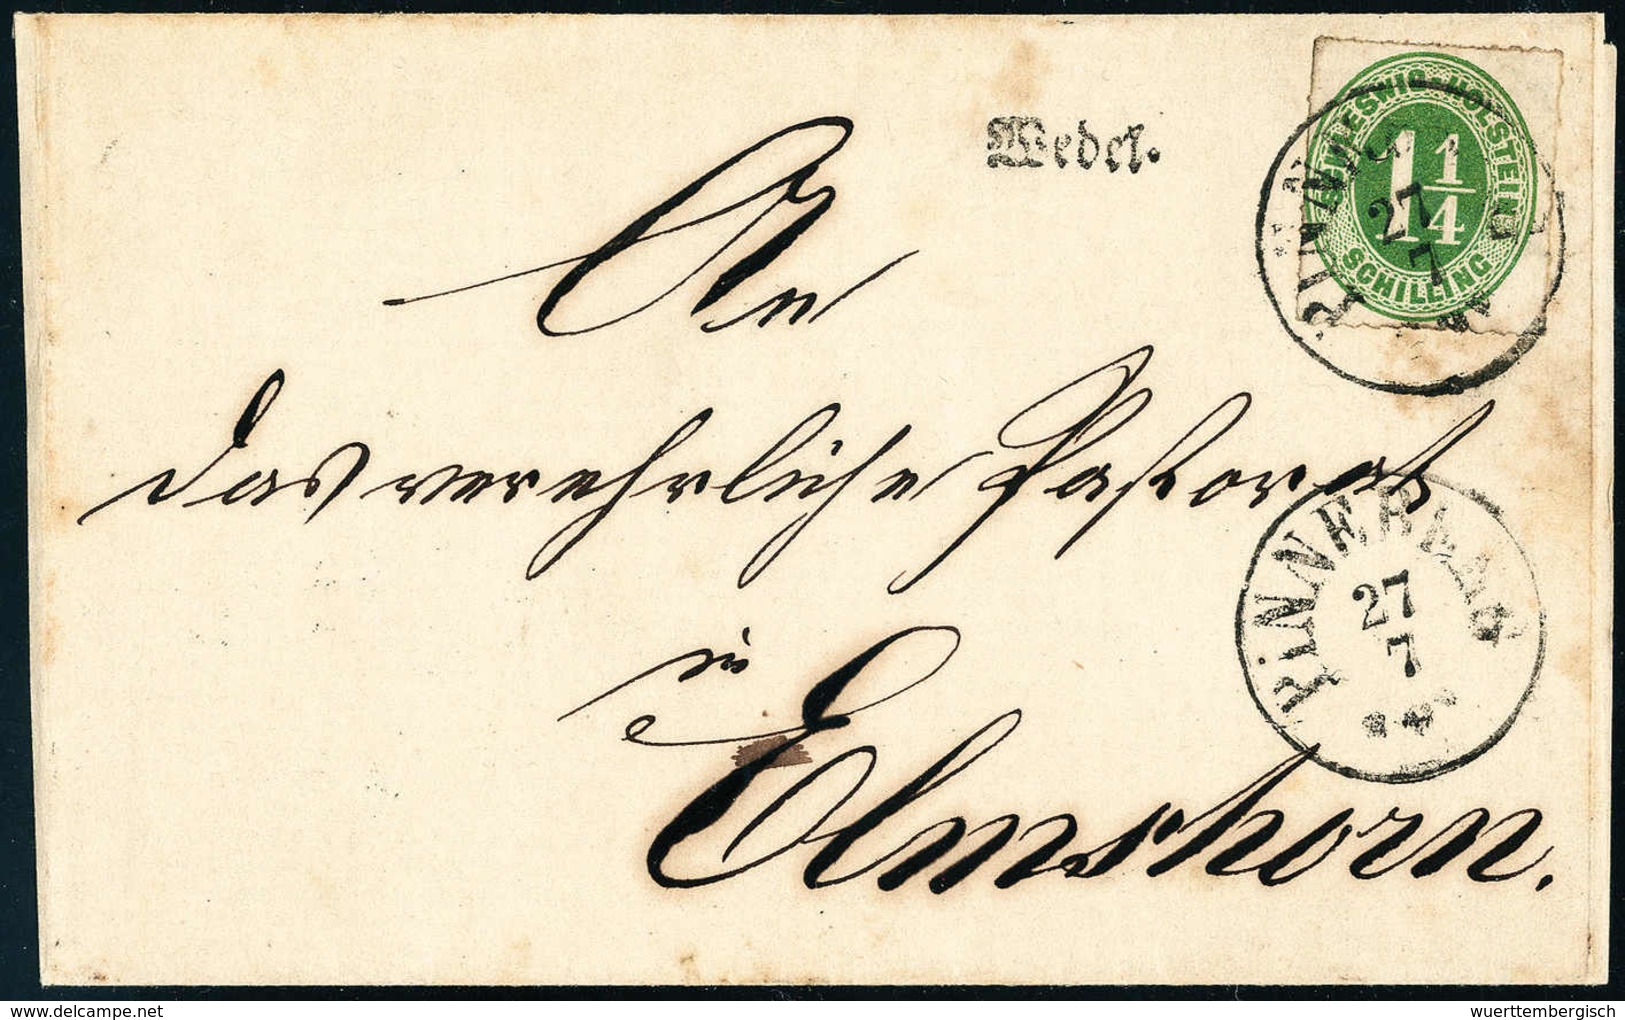 Wedel.
SCHLESWIG-HOLSTEIN
1 1/4
SCHILLING
PINNEBERG
27
7
An
das verehrliche Pastorat
PINNEBERG
27
7
in
Elmshorn.
© www.delcampe.net
wuerttembergisch